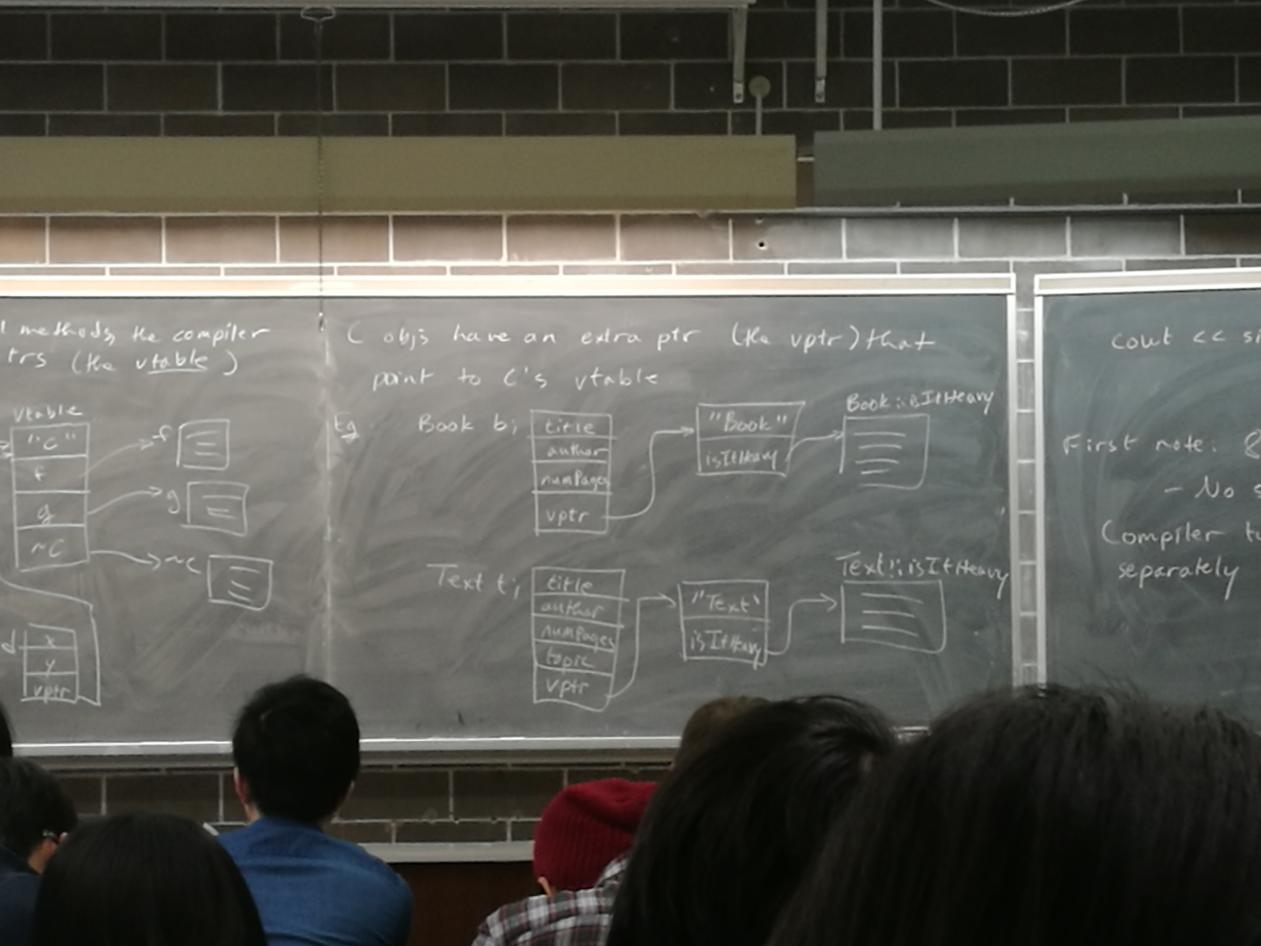 methods, the compiler
(the vtable)
vtable
"C"
f
g
~C
f
g
~C
d
x
y
vptr
C objs have an extra ptr (the vptr) that
point to C's vtable
Eg Book b;
title
author
numPages
vptr
"Book"
isItHeavy
Book::isItHeavy
Text t;
title
author
numPages
topic
vptr
"Text"
isItHeavy
Text::isItHeavy
cout <<
First note:
- No
Compiler
separately